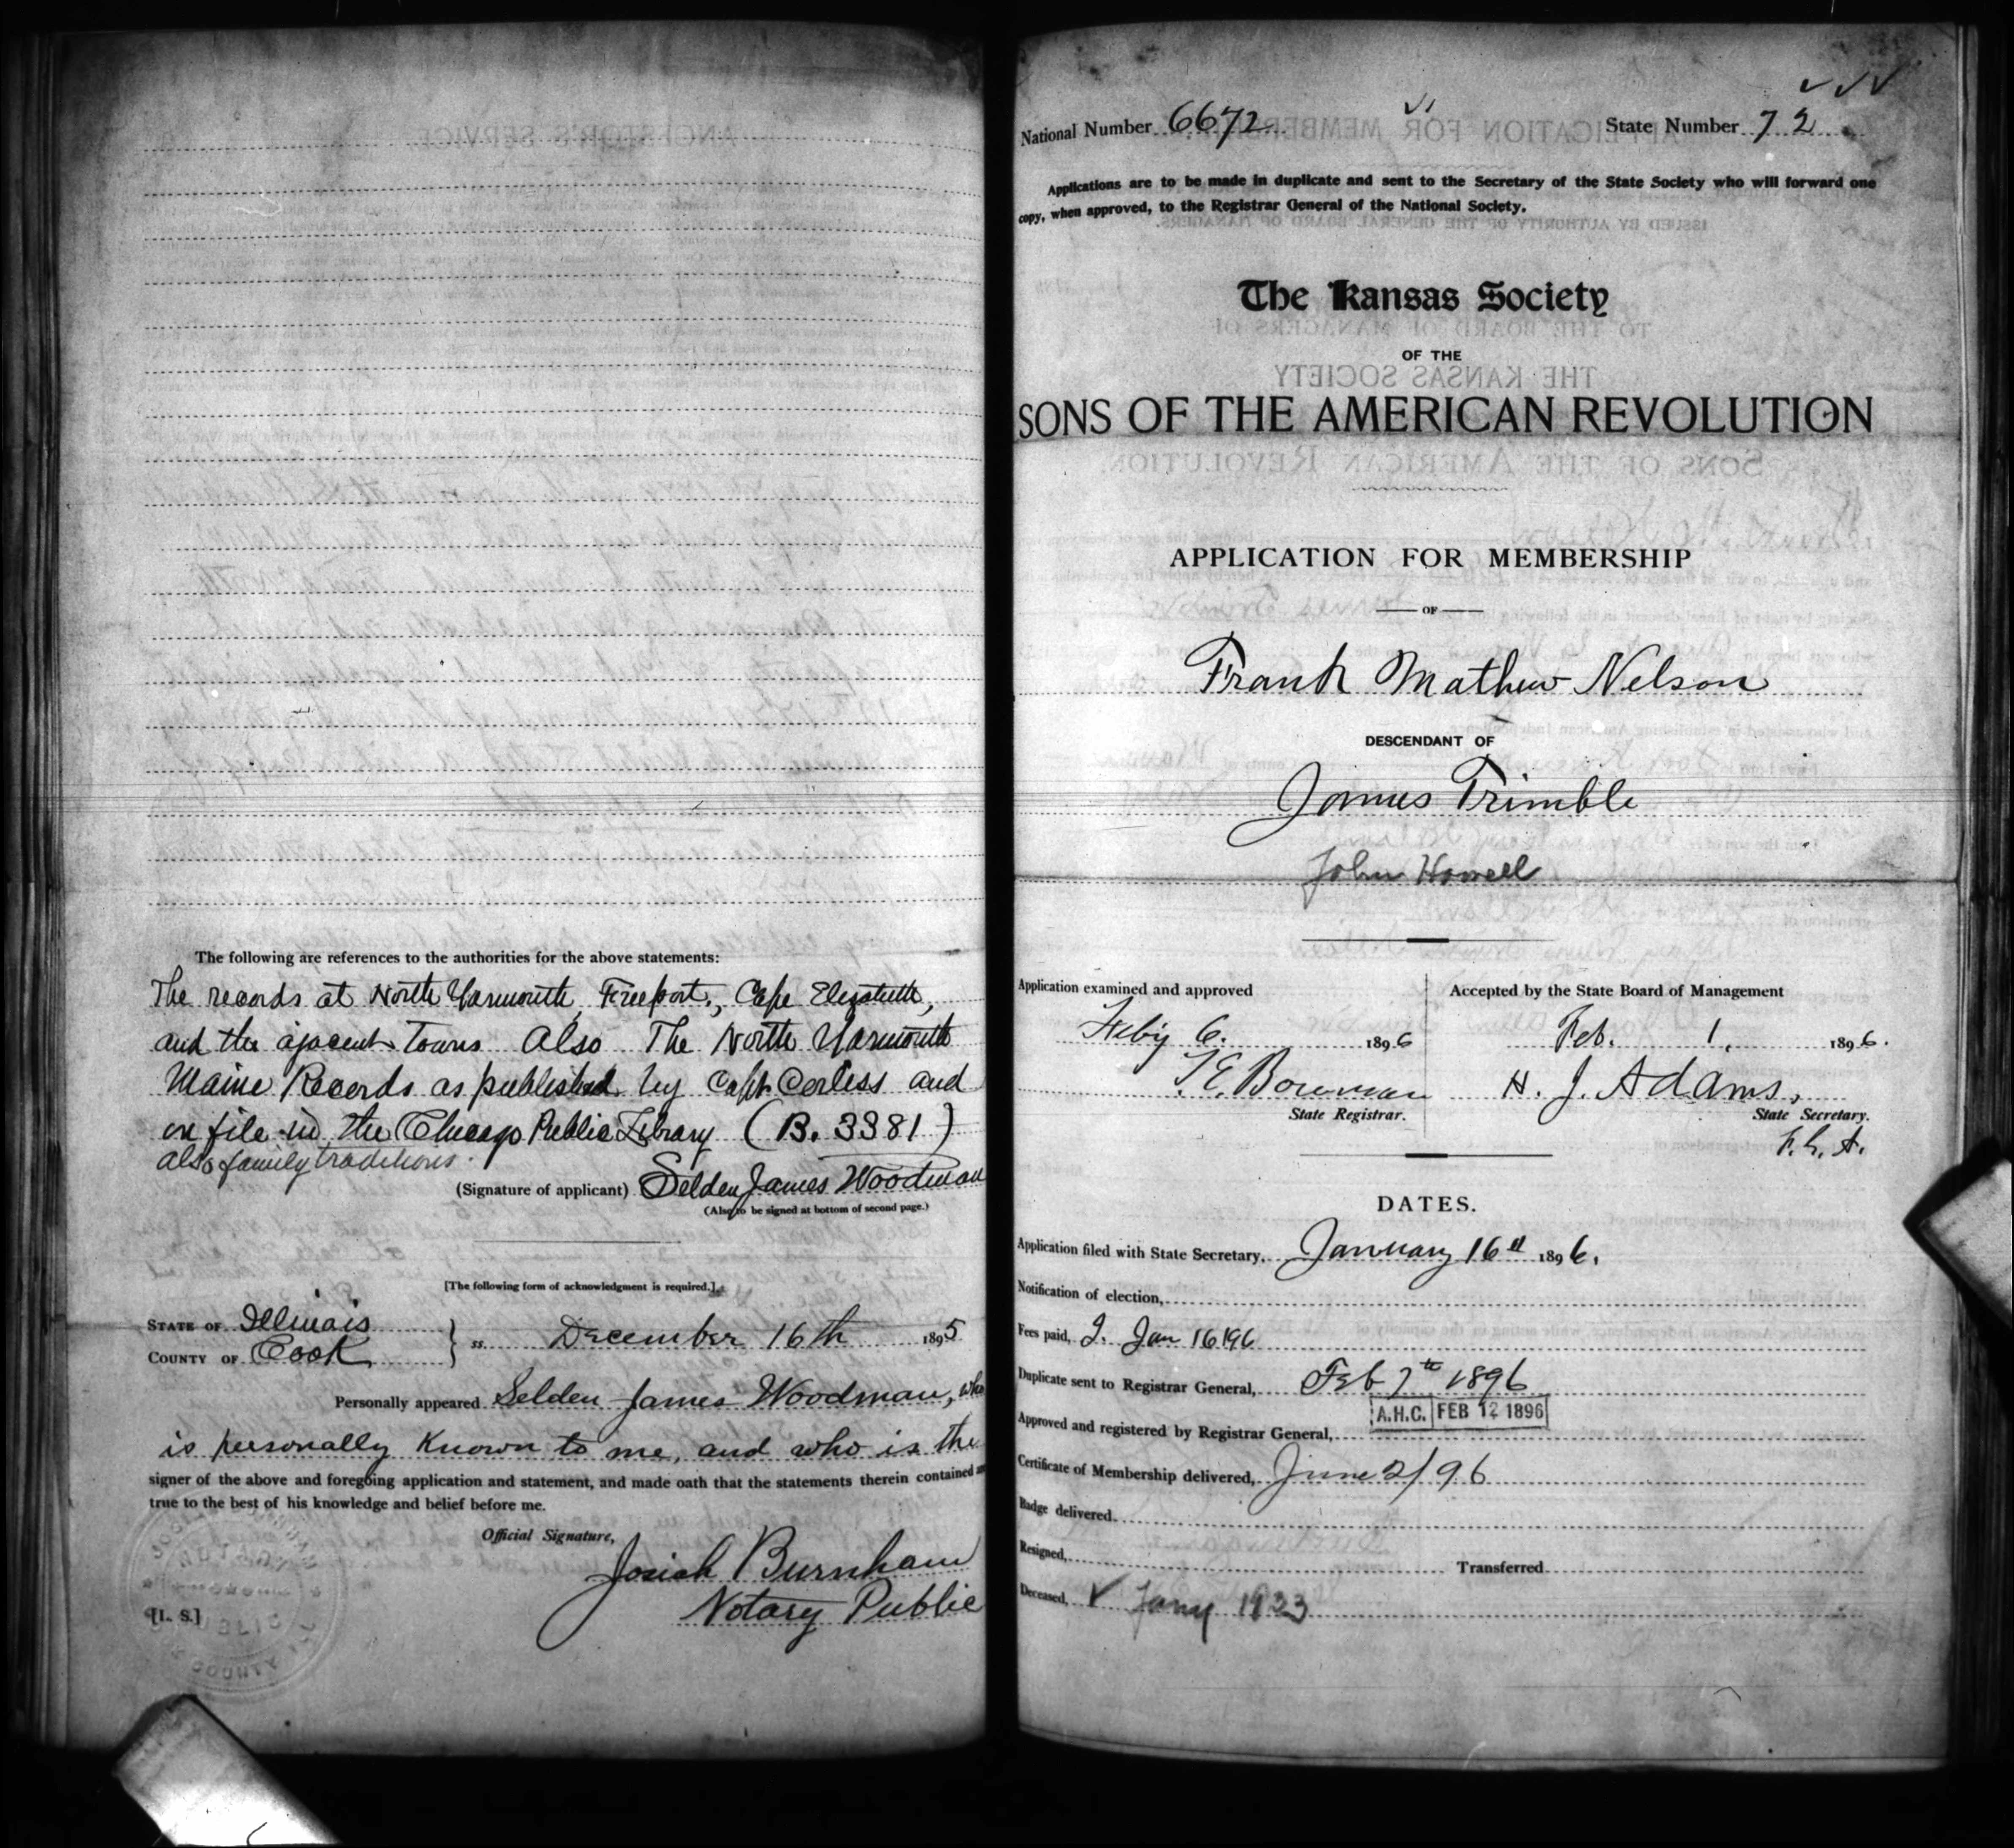 The following are references to the authorities for the above statements:
The records at North Yarmouth, Freeport, Cape Elizabeth,
and the ajacent towns Also The North Yarmouth
Maine Records as published by Capt Corless and
on file in the Chicago Public Library (B. 3381)
also family traditions.
(Signature of applicant) Selden James Woodman
(Also to be signed at bottom of second page.)
[The following form of acknowledgment is required.]
STATE OF Illinois
COUNTY OF Cook } ss. December 16th 1895
Personally appeared Selden James Woodman, who
is personally known to me, and who is the
signer of the above and foregoing application and statement, and made oath that the statements therein contained are
true to the best of his knowledge and belief before me.
Official Signature,
Josiah Burnham
Notary Public
[L. S.]
National Number 6672 State Number 72
Applications are to be made in duplicate and sent to the Secretary of the State Society who will forward one
copy, when approved, to the Registrar General of the National Society.
The Kansas Society
OF THE
SONS OF THE AMERICAN REVOLUTION
APPLICATION FOR MEMBERSHIP
OF
Frank Mathew Nelson
DESCENDANT OF
James Trimble
John Howell
Application examined and approved
Feby 6. 1896
T. E. Bowman
State Registrar.
Accepted by the State Board of Management
Feb. 1, 1896.
H. J. Adams,
State Secretary.
DATES.
Application filed with State Secretary, January 16th 1896.
Notification of election,
Fees paid, 2. Jan 16 196
Duplicate sent to Registrar General, Feb 7th 1896
A.H.C. FEB 12 1896
Approved and registered by Registrar General,
Certificate of Membership delivered, June 2/96
Badge delivered
Resigned, Transferred
Deceased, ✓ Jany 1933